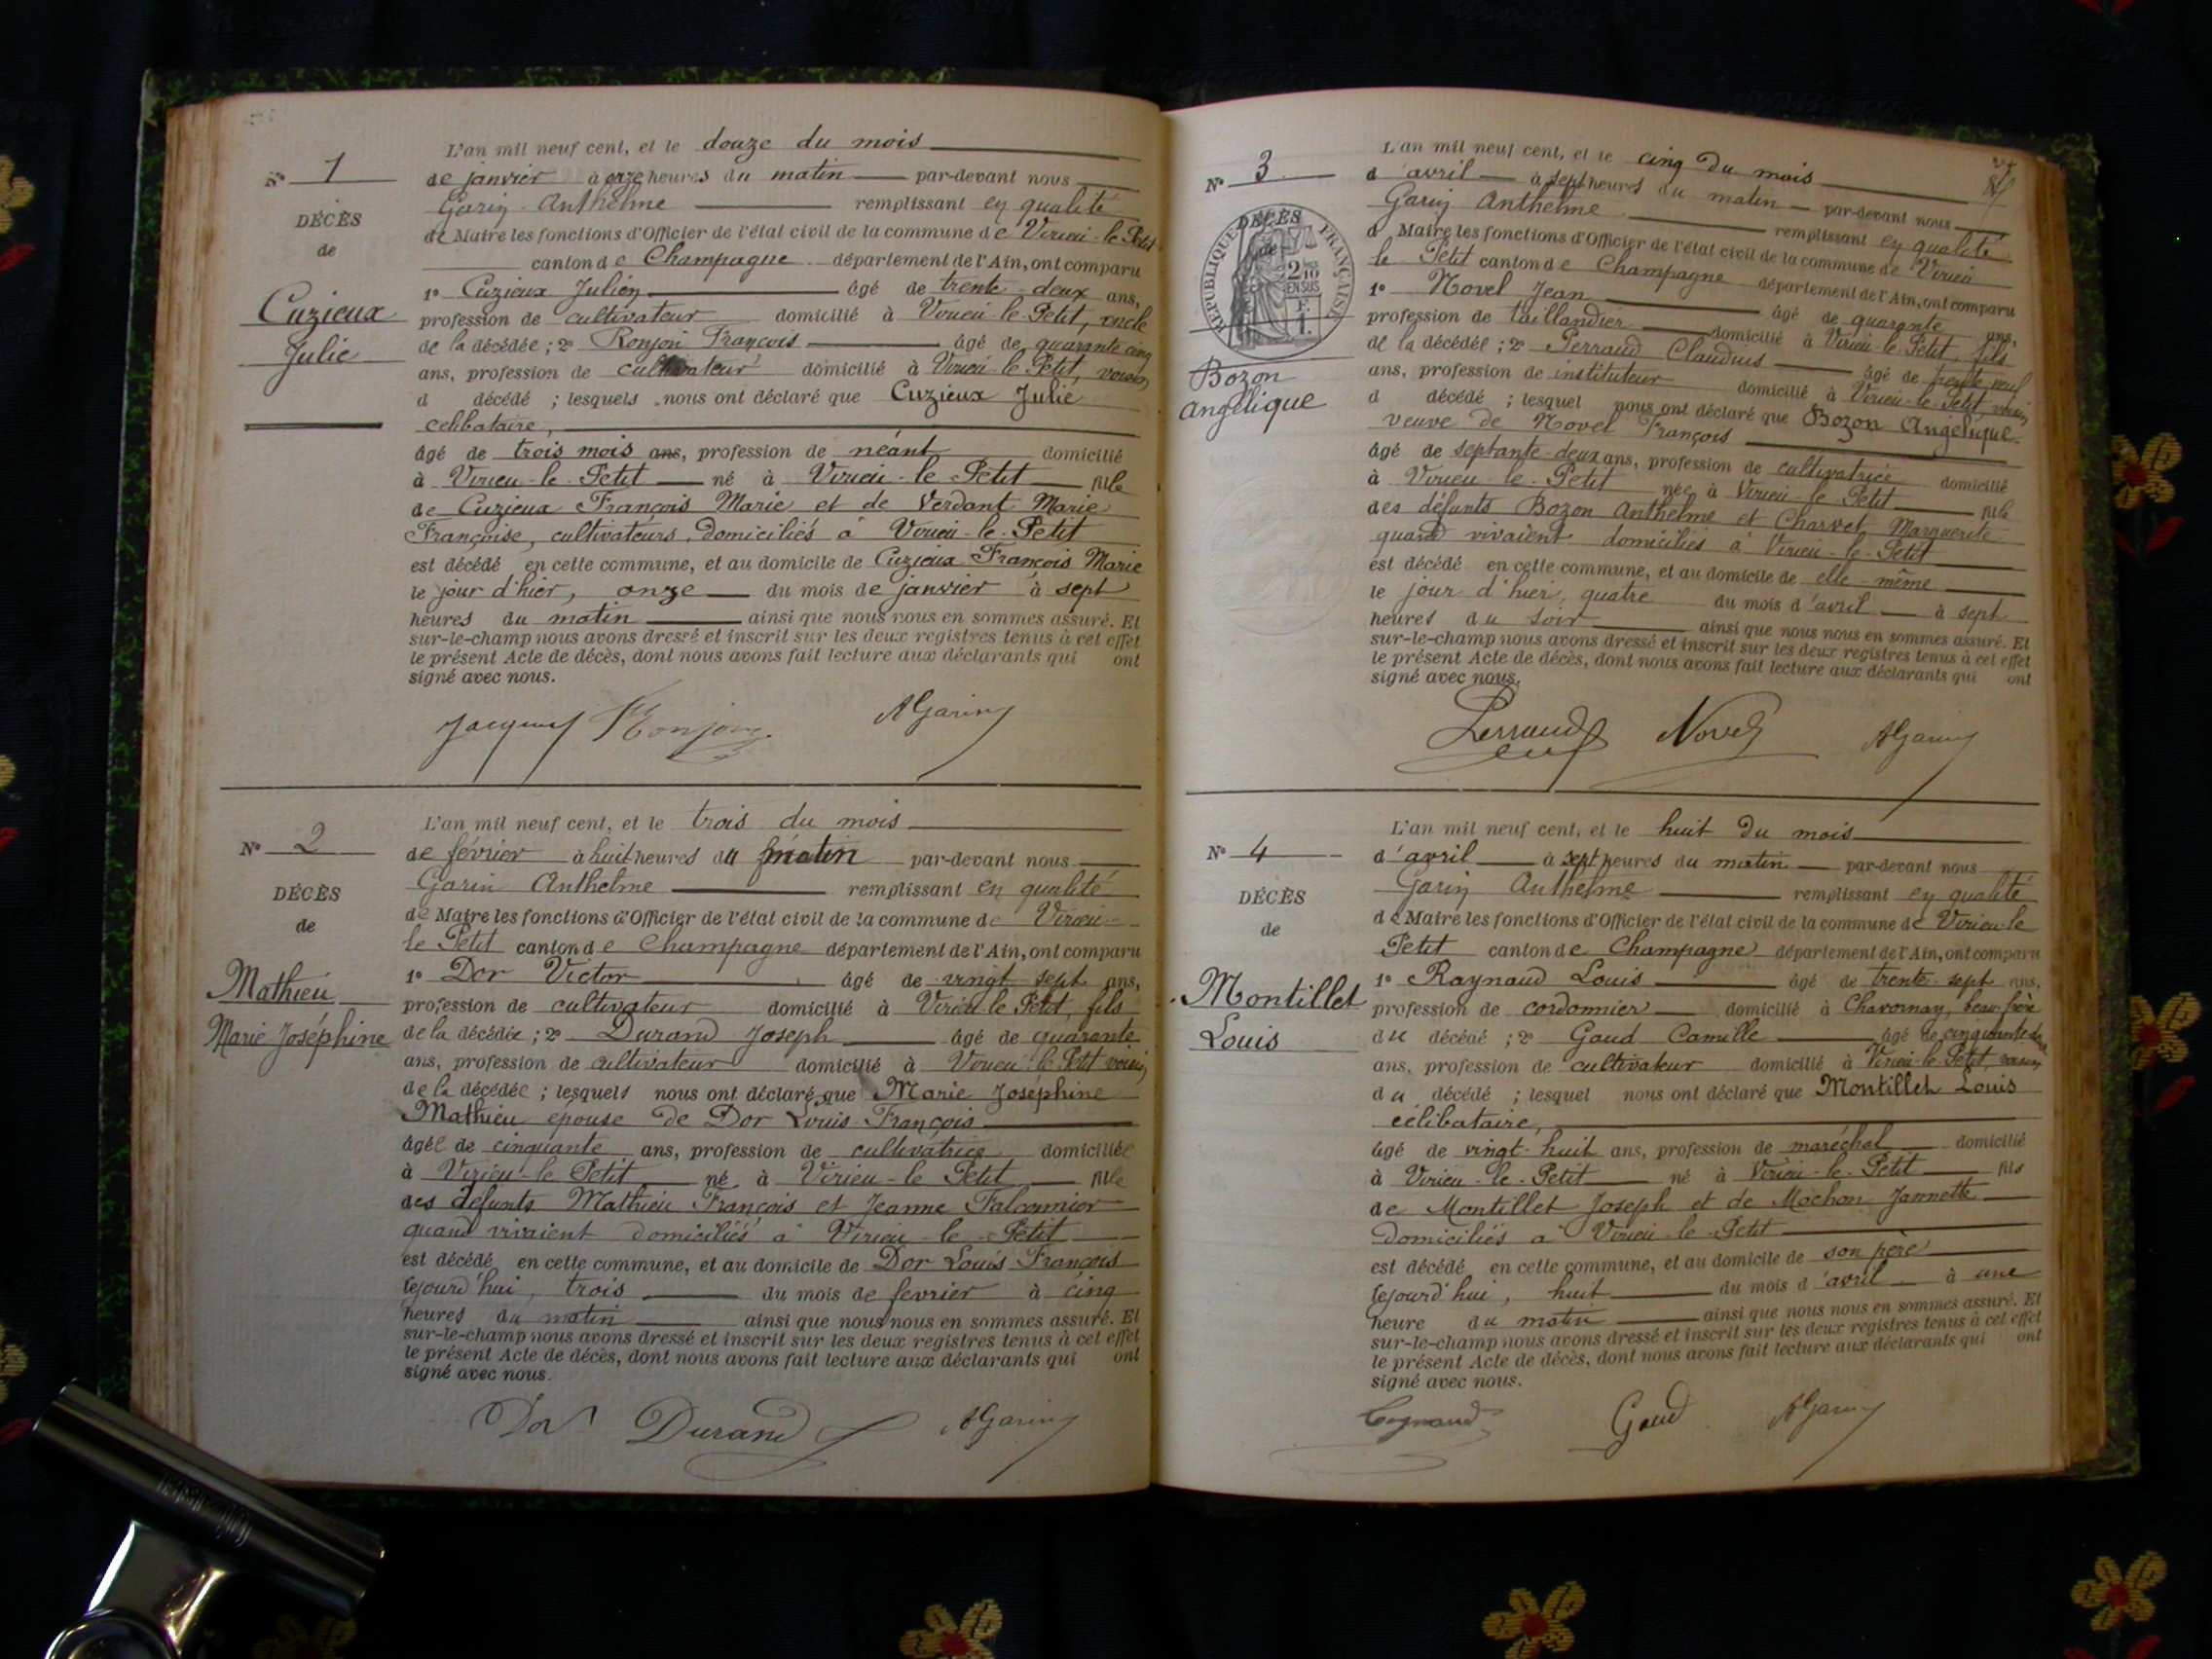 L'an mil neuf cent, et le douze du mois
N° 1
de janvier à onze heures du matin par-devant nous
Garin Anthelme remplissant en qualité
DÉCÈS
de Maire les fonctions d'Officier de l'état civil de la commune de Virieu-le-Petit
de
canton de Champagne département de l'Ain, ont comparu
1° Cuzieux Julien âgé de trente-deux ans,
Cuzieux
profession de cultivateur domicilié à Virieu-le-Petit, oncle
Julie
de la décédée; 2° Ronjon François âgé de quarante cinq
ans, profession de cultivateur domicilié à Virieu-le-Petit, voisin
d décédé ; lesquels nous ont déclaré que Cuzieux Julie
célibataire,
âgé de trois mois ans, profession de néant domicilié
à Virieu-le-Petit né à Virieu-le-Petit fille
de Cuzieux François Marie et de Verdant Marie
Françoise, cultivateurs, domiciliés à Virieu-le-Petit
est décédé en cette commune, et au domicile de Cuzieux François Marie
le jour d'hier, onze du mois de janvier à sept
heures du matin ainsi que nous nous en sommes assuré. Et
sur-le-champ nous avons dressé et inscrit sur les deux registres tenus à cet effet
le présent Acte de décès, dont nous avons fait lecture aux déclarants qui ont
signé avec nous.
Ronjon AGarin
L'an mil neuf cent, et le trois du mois
N° 2
de février à huit heures du matin par-devant nous
Garin Anthelme remplissant en qualité
DÉCÈS
de Maire les fonctions d'Officier de l'état civil de la commune de Virieu-
de
le Petit canton de Champagne département de l'Ain, ont comparu
1° Dor Victor âgé de vingt sept ans,
Mathieu
profession de cultivateur domicilié à Virieu le Petit, fils
Marie Joséphine
de la décédée; 2° Durand Joseph âgé de quarante
ans, profession de cultivateur domicilié à Virieu le Petit voisin
de la décédée ; lesquels nous ont déclaré que Marie Joséphine
Mathieu épouse de Dor Louis François
âgée de cinquante ans, profession de cultivatrice domiciliée
à Virieu-le Petit né à Virieu-le Petit fille
des défunts Mathieu François et Jeanne Falconnier
quand vivaient domiciliés à Virieu-le-Petit
est décédé en cette commune, et au domicile de Dor Louis François
cejourd'hui, trois du mois de fevrier à cinq
heures du matin ainsi que nous nous en sommes assuré. Et
sur-le-champ nous avons dressé et inscrit sur les deux registres tenus à cet effet
le présent Acte de décès, dont nous avons fait lecture aux déclarants qui ont
signé avec nous.
Dor Durand AGarin
L'an mil neuf cent, et le cinq du mois
N° 3
d'avril à sept heures du matin par-devant nous
Garin Anthelme remplissant en qualité
DÉCÈS
de
RÉPUBLIQUE FRANÇAISE
2/10 EN SUS
F. 1.
d Maire les fonctions d'Officier de l'état civil de la commune de Virieu
le Petit canton de Champagne département de l'Ain, ont comparu
1° Novel Jean âgé de quarante ans,
profession de taillandier domicilié à Virieu-le-Petit, fils
de la décédée; 2° Perraud Claudius âgé de trente neuf
Bozon
ans, profession de instituteur domicilié à Virieu-le-Petit, voisin
Angélique
d décédé ; lesquel nous ont déclaré que Bozon Angélique
veuve de Novel François
âgé de septante-deux ans, profession de cultivatrice domicilié
à Virieu-le-Petit née à Virieu-le-Petit fille
des défunts Bozon Anthelme et Charvet Marguerite
quand vivaient domiciliés à Virieu-le-Petit
est décédé en cette commune, et au domicile de elle-même
le jour d'hier, quatre du mois d'avril à sept
heures du soir ainsi que nous nous en sommes assuré. Et
sur-le-champ nous avons dressé et inscrit sur les deux registres tenus à cet effet
le présent Acte de décès, dont nous avons fait lecture aux déclarants qui ont
signé avec nous.
Perraud Novel AGarin
L'an mil neuf cent, et le huit du mois
N° 4
d'avril à sept heures du matin par-devant nous
Garin Anthelme remplissant en qualité
DÉCÈS
de Maire les fonctions d'Officier de l'état civil de la commune de Virieu-le
de
Petit canton de Champagne département de l'Ain, ont comparu
1° Raynaud Louis âgé de trente-sept ans,
Montillet
profession de cordonnier domicilié à Chavornay, beau-frère
Louis
du décédé ; 2° Gaud Camille âgé de cinquante
ans, profession de cultivateur domicilié à Virieu-le-Petit, voisin
du décédé ; lesquel nous ont déclaré que Montillet Louis
célibataire,
âgé de vingt-huit ans, profession de maréchal domicilié
à Virieu-le-Petit né à Virieu-le-Petit fils
de Montillet Joseph et de Mochon Jannette
domiciliés à Virieu-le-Petit
est décédé en cette commune, et au domicile de son père
cejourd'hui, huit du mois d'avril à une
heure du matin ainsi que nous nous en sommes assuré. Et
sur-le-champ nous avons dressé et inscrit sur les deux registres tenus à cet effet
le présent Acte de décès, dont nous avons fait lecture aux déclarants qui ont
signé avec nous.
Gaud AGarin